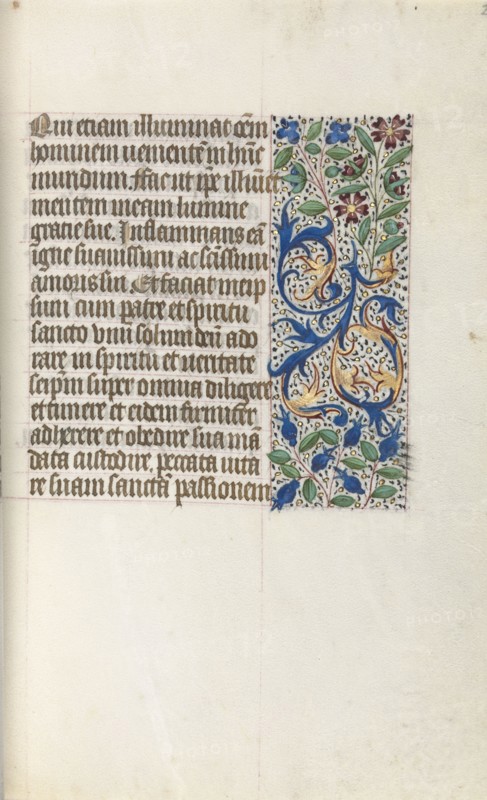 Qui etiam illuminat oēm
hominem uenientē in hūc
mundum. ffac ut ip̄e illuīet
mentem meam lumine
gratie sue. Inflammans eā
igne suauissimi ac sc̄issimi
amoris sui Et faciat me ip̄
sum cum patre et spiritu
sancto vnū solum deū ado
rare in spiritu et ueritate
seipm̄ super omnia diligere
et timere et eidem firmiter
adherere et obedire sua mā
data custodire. peccata uita
re suam sanctā passionem
2